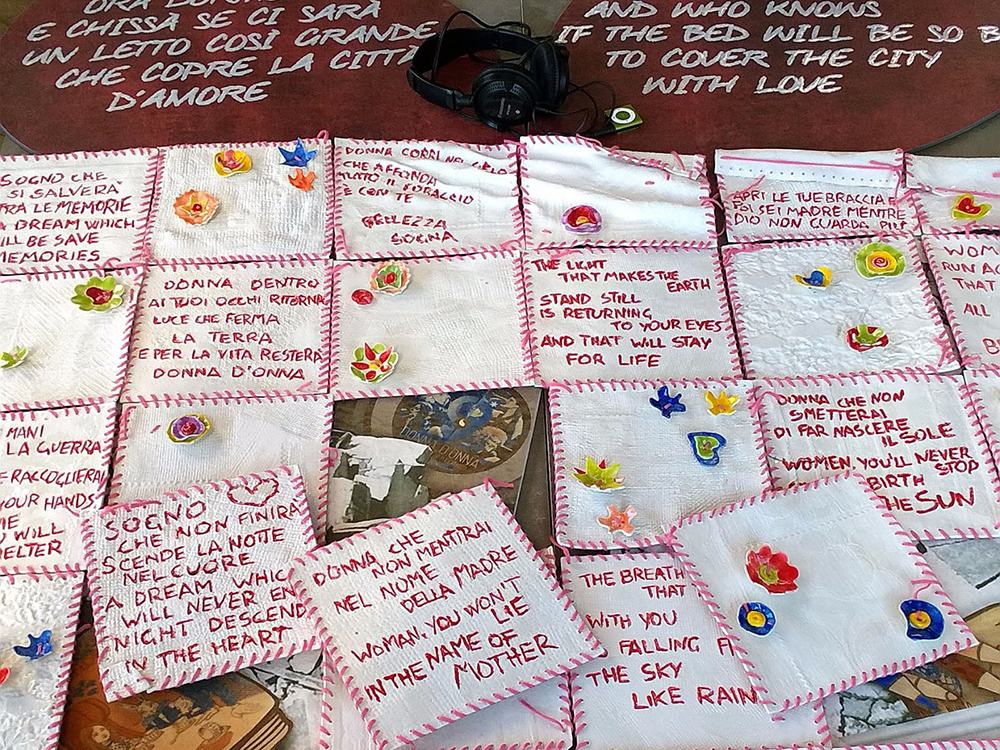 ORA DONNA
E CHISSÀ SE CI SARÀ
UN LETTO COSÌ GRANDE
CHE COPRE LA CITTÀ
D'AMORE
AND WHO KNOWS
IF THE BED WILL BE SO B
TO COVER THE CITY
WITH LOVE
SOGNO CHE
SI SALVERA'
TRA LE MEMORIE
A DREAM WHICH
ILL BE SAVE
MEMORIES
DONNA CORRI NEL CIELO
CHE AFFONDA
TUTTO IL
E CON TE
BELLEZZA
SOGNA
APRI LE TUE BRACCIA E
POI SEI MADRE MENTRE
DIO NON GUARDA PIU'
DONNA DENTRO
AI TUOI OCCHI RITORNA
LUCE CHE FERMA
LA TERRA
E PER LA VITA RESTERA'
DONNA D'ONNA
THE LIGHT
THAT MAKES THE
EARTH
STAND STILL
IS RETURNING
TO YOUR EYES
AND THAT WILL STAY
FOR LIFE
WOM
RUN AC
THAT
ALL
B
MANI
LA GUERRA
E RACCOGLIERAI
YOUR HANDS
WILL
HELTER
DONNA D'ONNA
DONNA CHE NON
SMETTERAI
DI FAR NASCERE
IL SOLE
WOMEN, YOU'LL NEVER
STOP
BIRTH
THE SUN
SOGNO
CHE NON FINIRA'
SCENDE LA NOTTE
NEL CUORE
A DREAM WHIC
WILL NEVER EN
NIGHT DESCEND
IN THE HEART
DONNA CHE
NON MENTIRAI
NEL NOME
DELLA MADRE
WOMAN, YOU WON'T
LIE
IN THE NAME OF
MOTHER
THE BREATH
THAT
WITH YOU
FALLING F
THE SKY
LIKE RAIN